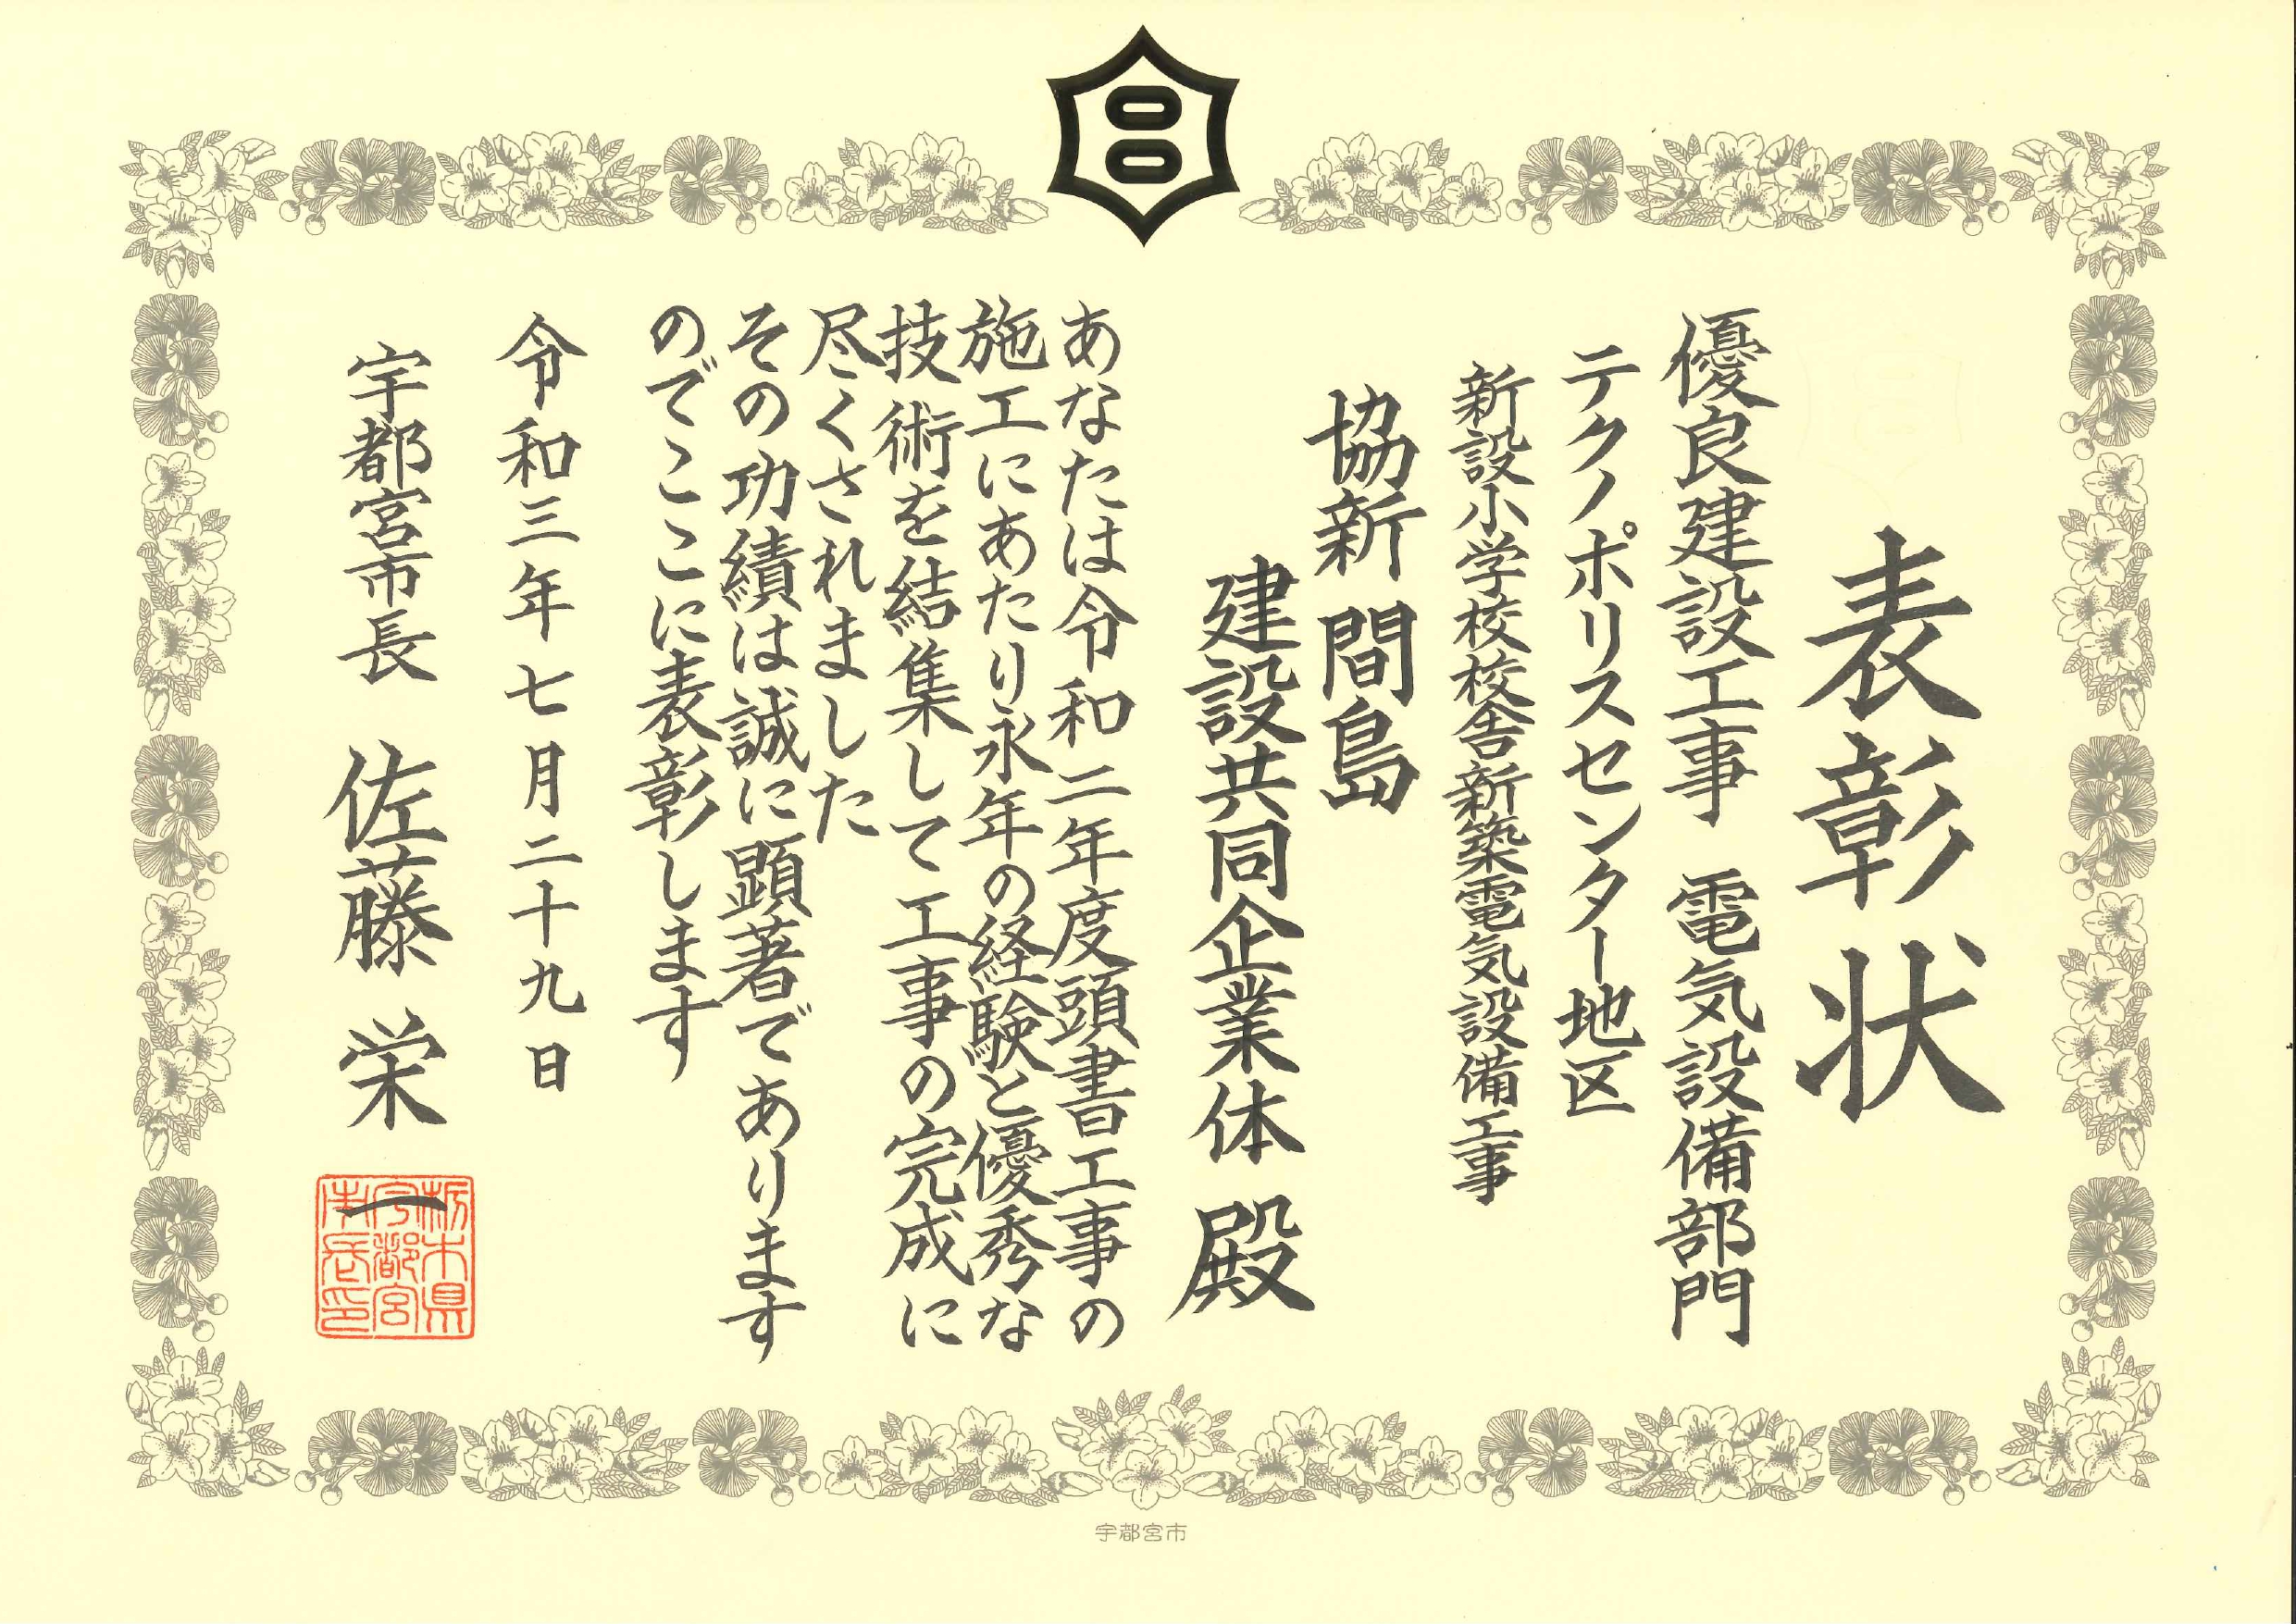 表彰状
優良建設工事 電気設備部門
テクノポリスセンター地区
新設小学校校舎新築電気設備工事
協新 間島
建設共同企業体 殿
あなたは令和二年度頭書工事の
施工にあたり永年の経験と優秀な
技術を結集して工事の完成に
尽くされました
その功績は誠に顕著であります
のでここに表彰します
令和三年七月二十九日
宇都宮市長 佐藤栄一
栃木県
宇都宮
市長印
宇都宮市